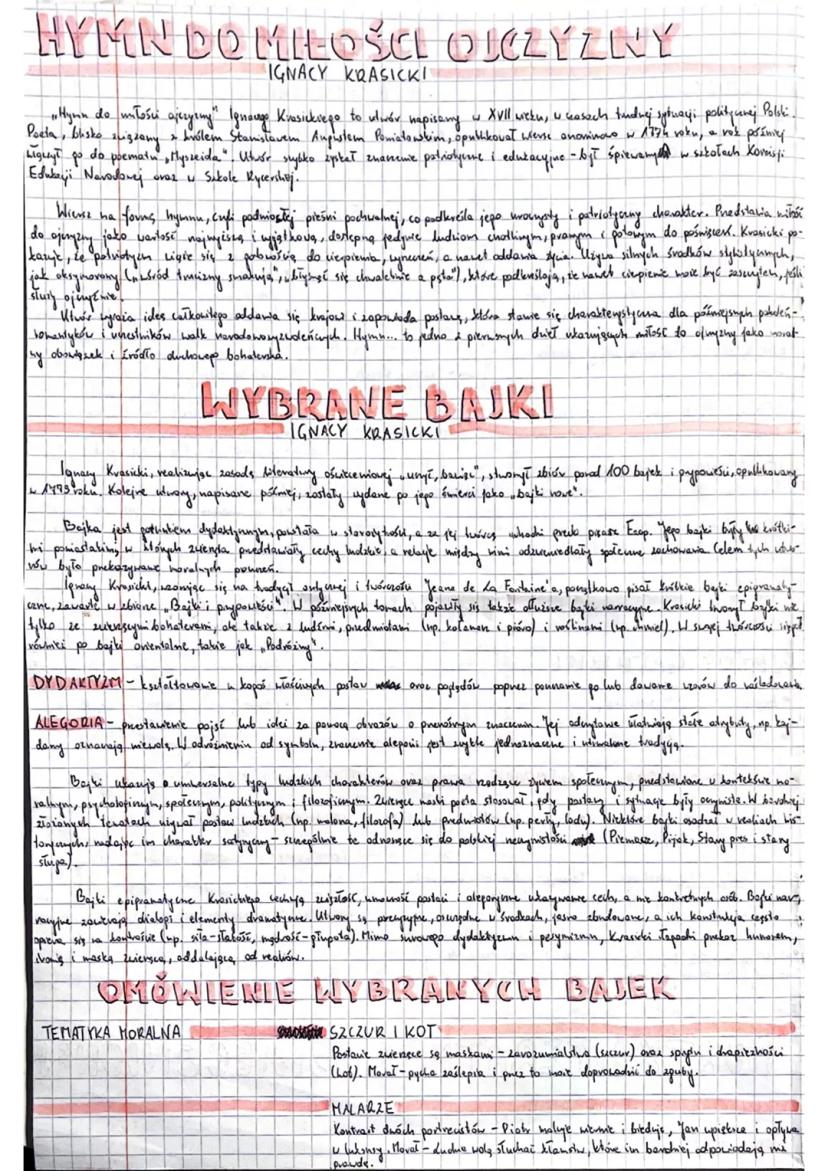 HYMN DO MIŁOŚCI OJCZYZNY
IGNACY KRASICKI
„Hymn do miłości ojczyzny" Ignacego Krasickiego to utwór napisany w XVII wieku, w czasach trudnej sytuacji politycznej Polski.
Poeta, blisko związany z królem Stanisławem Augustem Poniatowskim, opublikował wiersz anonimowo w 1774 roku, a rok później
włączył go do poematu „Myszeida". Utwór szybko zyskał znaczenie patriotyczne i edukacyjne - był śpiewany w szkołach Komisji
Edukacji Narodowej oraz w Szkole Rycerskiej.
Wiersz ma formę hymnu, czyli podniosłej pieśni pochwalnej, co podkreśla jego uroczysty i patriotyczny charakter. Przedstawia miłość
do ojczyzny jako wartość najwyższą i wyjątkową, dostępną jedynie ludziom cnotliwym, prawym i gotowym do poświęceń. Krasicki po-
kazuje, że patriotyzm wiąże się z gotowością do cierpienia, wyrzeczeń, a nawet oddania życia. Używa silnych środków stylistycznych,
jak oksymorony („wśród trucizny smakują", „błyszczeć się chwalebnie a pęta"), które podkreślają, że nawet cierpienie może być zaszczytem, jeśli
służy ojczyźnie.
Utwór wyraża ideę całkowitego oddania się krajowi i zapowiada postawę, która stanie się charakterystyczna dla późniejszych pokoleń -
romantyków i uczestników walk narodowowyzwoleńczych. Hymn... to jedno z pierwszych dzieł ukazujących miłość do ojczyzny jako moral-
ny obowiązek i źródło duchowego bohaterstwa.
WYBRANE BAJKI
IGNACY KRASICKI
Ignacy Krasicki, realizując zasadę literatury oświeceniowej „uczyć, bawiąc", stworzył zbiór ponad 100 bajek i przypowieści, opublikowany
w 1779 roku. Kolejne utwory, napisane później, zostały wydane po jego śmierci jako „bajki nowe".
Bajka jest gatunkiem dydaktycznym, powstała w starożytności, a za jej twórcę uchodzi grecki pisarz Ezop. Jego bajki były krótki-
mi powiastkami, w których zwierzęta przedstawiały cechy ludzkie, a relacje między nimi odzwierciedlały społeczne zachowania. Celem tych utwo-
rów było przekazywanie moralnych pouczeń.
Ignacy Krasicki, wzorując się na tradycji antycznej i twórczości Jeana de La Fontaine'a, początkowo pisał krótkie bajki epigramaty-
czne, zawarte w zbiorze „Bajki i przypowieści". W późniejszych tomach pojawiły się także dłuższe bajki narracyjne. Krasicki tworzył bajki nie
tylko ze zwierzęcymi bohaterami, ale także z ludźmi, przedmiotami (np. kałamarz i pióro) i roślinami (np. chmiel). W swojej twórczości sięgał
również po bajki orientalne, takie jak „Podróżny".
DYDAKTYZM - kształtowanie u kogoś właściwych postaw oraz poglądów poprzez pouczanie go lub dawanie wzorów do naśladowania.
ALEGORIA - przedstawienie pojęć lub idei za pomocą obrazów o przenośnym znaczeniu. Jej odczytanie ułatwiają stałe atrybuty, np. kaj-
dany oznaczają niewolę. W odróżnieniu od symbolu, znaczenie alegorii jest zwykle jednoznaczne i utrwalone tradycją.
Bajki ukazują uniwersalne typy ludzkich charakterów oraz prawa rządzące życiem społecznym, przedstawione w kontekście mo-
ralnym, psychologicznym, społecznym, politycznym i filozoficznym. Zwierzęce maski poeta stosował, gdy postawy i sytuacje były oczywiste. W bardziej
złożonych tematach używał postaw ludzkich (np. malarza, filozofa) lub przedmiotów (np. perły, lodu). Niektóre bajki osadzał w realiach his-
torycznych, nadając im charakter satyryczny - szczególnie te odnoszące się do polskiej rzeczywistości (Pieniacze, Pijak, Stary pies i stary
sługa).
Bajki epigramatyczne Krasickiego cechują zwięzłość, umowność postaci i alegoryczne ukazywanie cech, a nie konkretnych osób. Bajki nar-
racyjne zawierają dialogi i elementy dramatyczne. Utwory są precyzyjne, oszczędne w środkach, jasno zbudowane, a ich konstrukcja często
opiera się na kontraście (np. siła-słabość, mądrość-głupota). Mimo surowego dydaktyzmu i pesymizmu, Krasicki łagodzi przekaz humorem,
ironią i maską zwierzęcą, oddalającą od realiów.
OMÓWIENIE WYBRANYCH BAJEK
TEMATYKA MORALNA
SZCZUR I KOT
Postacie zwierzęce są maskami - zarozumialstwa (szczur) oraz sprytu i drapieżności
(kot). Morał - pycha zaślepia i przez to może doprowadzić do zguby.
MALARZE
Kontrast dwóch portrecistów - Piotr maluje wiernie i bieduje, Jan upiększa i opływa
w luksusy. Morał - ludzie wolą słuchać kłamstw, które im bardziej odpowiadają niż
prawda.